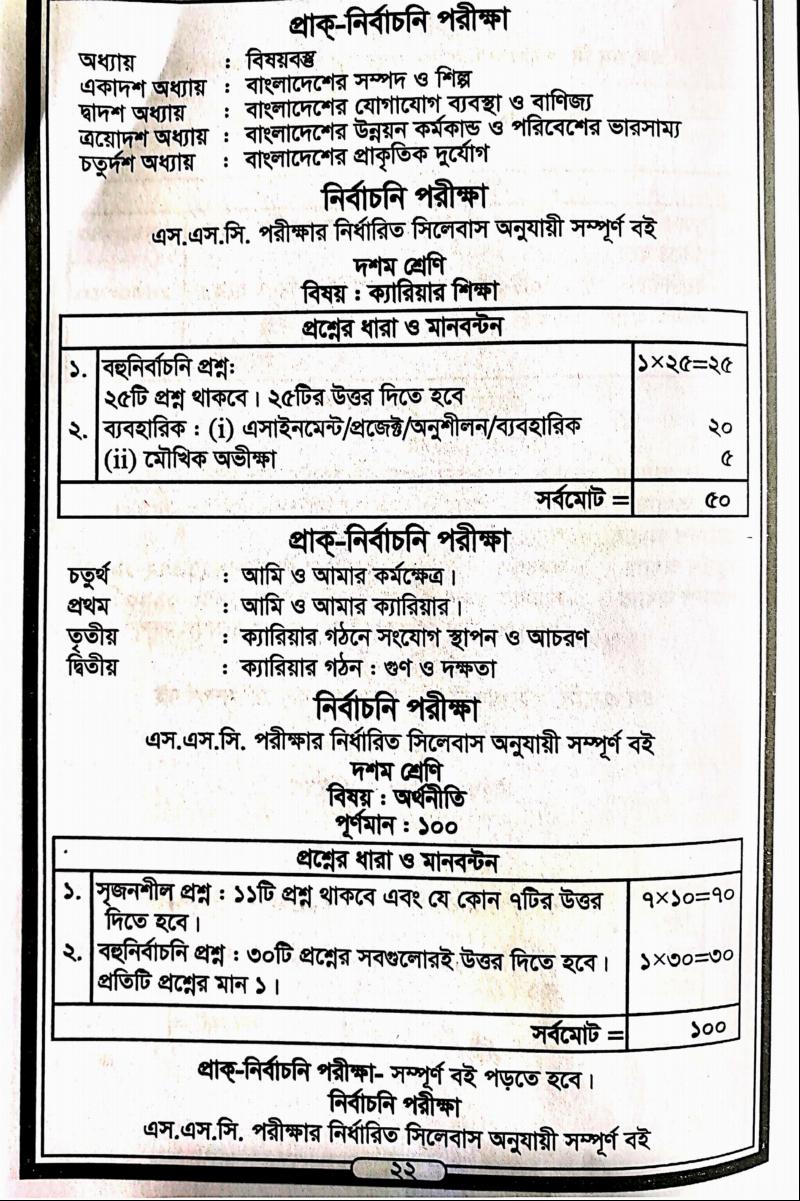 প্রাক্-নির্বাচনি পরীক্ষা
অধ্যায় : বিষয়বস্তু
একাদশ অধ্যায় : বাংলাদেশের সম্পদ ও শিল্প
দ্বাদশ অধ্যায় : বাংলাদেশের যোগাযোগ ব্যবস্থা ও বাণিজ্য
ত্রয়োদশ অধ্যায় : বাংলাদেশের উন্নয়ন কর্মকান্ড ও পরিবেশের ভারসাম্য
চতুর্দশ অধ্যায় : বাংলাদেশের প্রাকৃতিক দুর্যোগ
নির্বাচনি পরীক্ষা
এস.এস.সি. পরীক্ষার নির্ধারিত সিলেবাস অনুযায়ী সম্পূর্ণ বই
দশম শ্রেণি
বিষয় : ক্যারিয়ার শিক্ষা
প্রশ্নের ধারা ও মানবন্টন
১. বহুনির্বাচনি প্রশ্ন: ১×২৫=২৫
২৫টি প্রশ্ন থাকবে। ২৫টির উত্তর দিতে হবে
২. ব্যবহারিক : (i) এসাইনমেন্ট/প্রজেক্ট/অনুশীলন/ব্যবহারিক ২০
(ii) মৌখিক অভীক্ষা ৫
সর্বমোট = ৫০
প্রাক্-নির্বাচনি পরীক্ষা
চতুর্থ : আমি ও আমার কর্মক্ষেত্র।
প্রথম : আমি ও আমার ক্যারিয়ার।
তৃতীয় : ক্যারিয়ার গঠনে সংযোগ স্থাপন ও আচরণ
দ্বিতীয় : ক্যারিয়ার গঠন : গুণ ও দক্ষতা
নির্বাচনি পরীক্ষা
এস.এস.সি. পরীক্ষার নির্ধারিত সিলেবাস অনুযায়ী সম্পূর্ণ বই
দশম শ্রেণি
বিষয় : অর্থনীতি
পূর্ণমান : ১০০
প্রশ্নের ধারা ও মানবন্টন
১. সৃজনশীল প্রশ্ন : ১১টি প্রশ্ন থাকবে এবং যে কোন ৭টির উত্তর ৭×১০=৭০
দিতে হবে।
২. বহুনির্বাচনি প্রশ্ন : ৩০টি প্রশ্নের সবগুলোরই উত্তর দিতে হবে। ১×৩০=৩০
প্রতিটি প্রশ্নের মান ১।
সর্বমোট = ১০০
প্রাক্-নির্বাচনি পরীক্ষা- সম্পূর্ণ বই পড়তে হবে।
নির্বাচনি পরীক্ষা
এস.এস.সি. পরীক্ষার নির্ধারিত সিলেবাস অনুযায়ী সম্পূর্ণ বই
২২